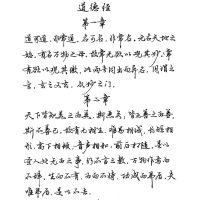 道德经
第一章
道可道，非常道，名可名，非常名，无名天地之
始，有名万物之母，故常无欲以观其妙，常
有欲以观其徼，此两者同出而异名，同谓之
玄，玄之又玄，众妙之门。
第二章
天下皆知美之为美，斯恶矣，皆知善之为善，
斯不善已，故有无相生，难易相成，长短相
形，高下相倾，音声相和，前后相随，是以
圣人处无为之事，行不言之教，万物作焉而
不辞，生而不有，为而不恃，功成而弗居，夫
唯弗居，是以不去。